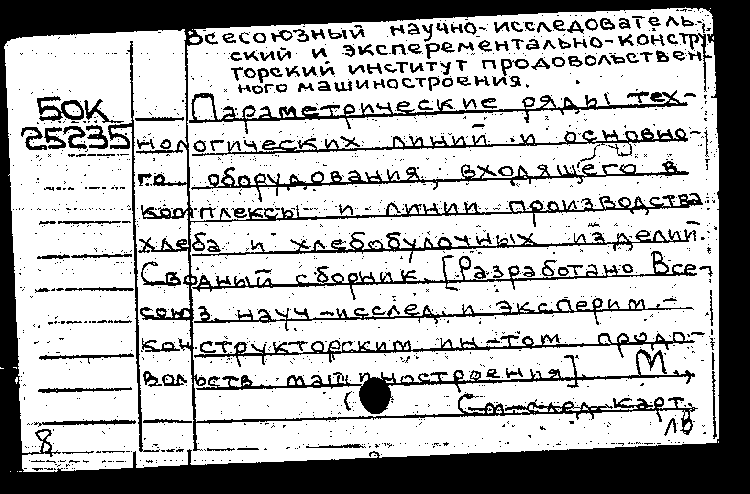 Всесоюзный научно-исследователь-
ский и эксперементально-конструк
торский институт продовольствен-
ного машиностроения.
БОК
25235
Параметрические ряды тех-
нологических линий и основно-
го оборудования, входящего в
комплексы и линии производства
хлеба и хлебобулочных изделий.
Сводный сборник. [Разработано Все-
союз. науч-исслед. и эксперим.-
конструкторским ин-том продо-
вольств. машиностроения]. М.,
(См след. карт.
8